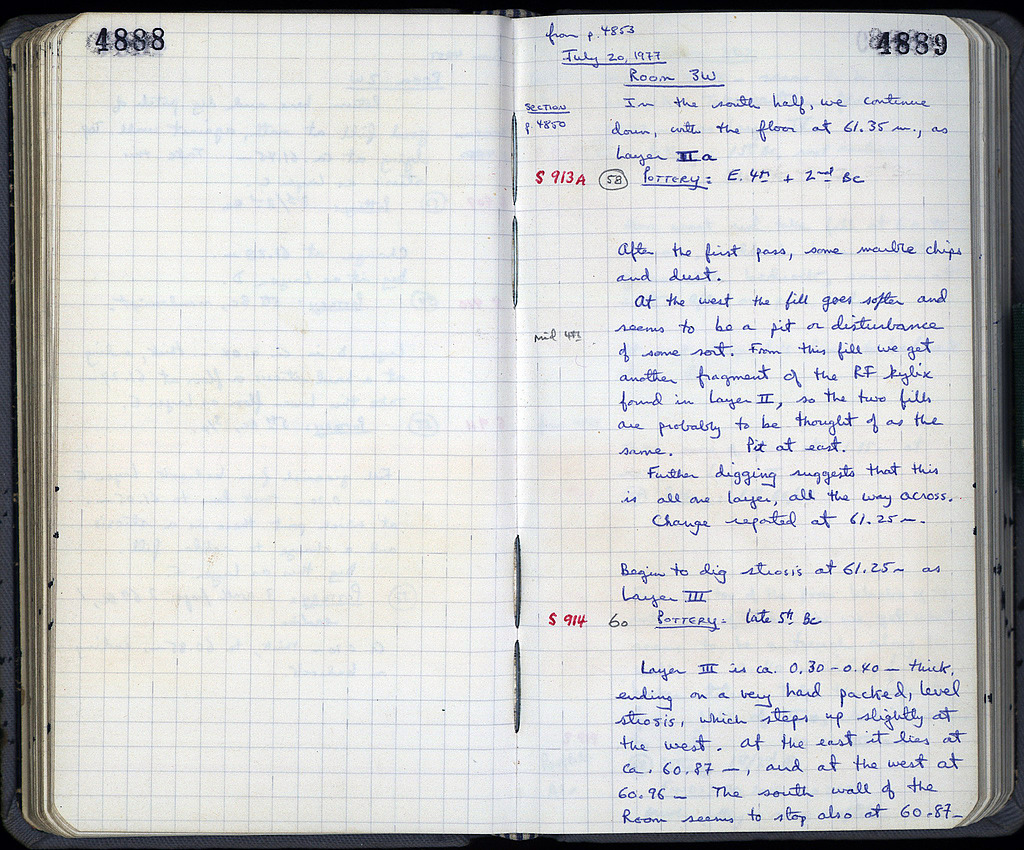 4888
4889
from p. 4853
July 20, 1977
Room 3W
In the south half, we continue
SECTION
p. 4850
down, with the floor at 61.35 m., as
Layer IIa
S 913A (58) POTTERY: E. 4th + 2nd BC
After the first pass, some marble chips
and dust.
At the west the fill goes softer and
mid 4th
seems to be a pit or disturbance
of some sort. From this fill we get
another fragment of the RF kylix
found in Layer II, so the two fills
are probably to be thought of as the
same. Pit at east.
Further digging suggests that this
is all one layer, all the way across.
Change reported at 61.25 m.
Begin to dig strosis at 61.25 m as
Layer III
S 914 60 POTTERY: late 5th BC
Layer III is ca. 0.30 - 0.40 m thick,
ending on a very hard packed, level
strosis, which steps up slightly at
the west. At the east it lies at
ca. 60.87 m, and at the west at
60.96 m The south wall of the
Room seems to stop also at 60.87 m